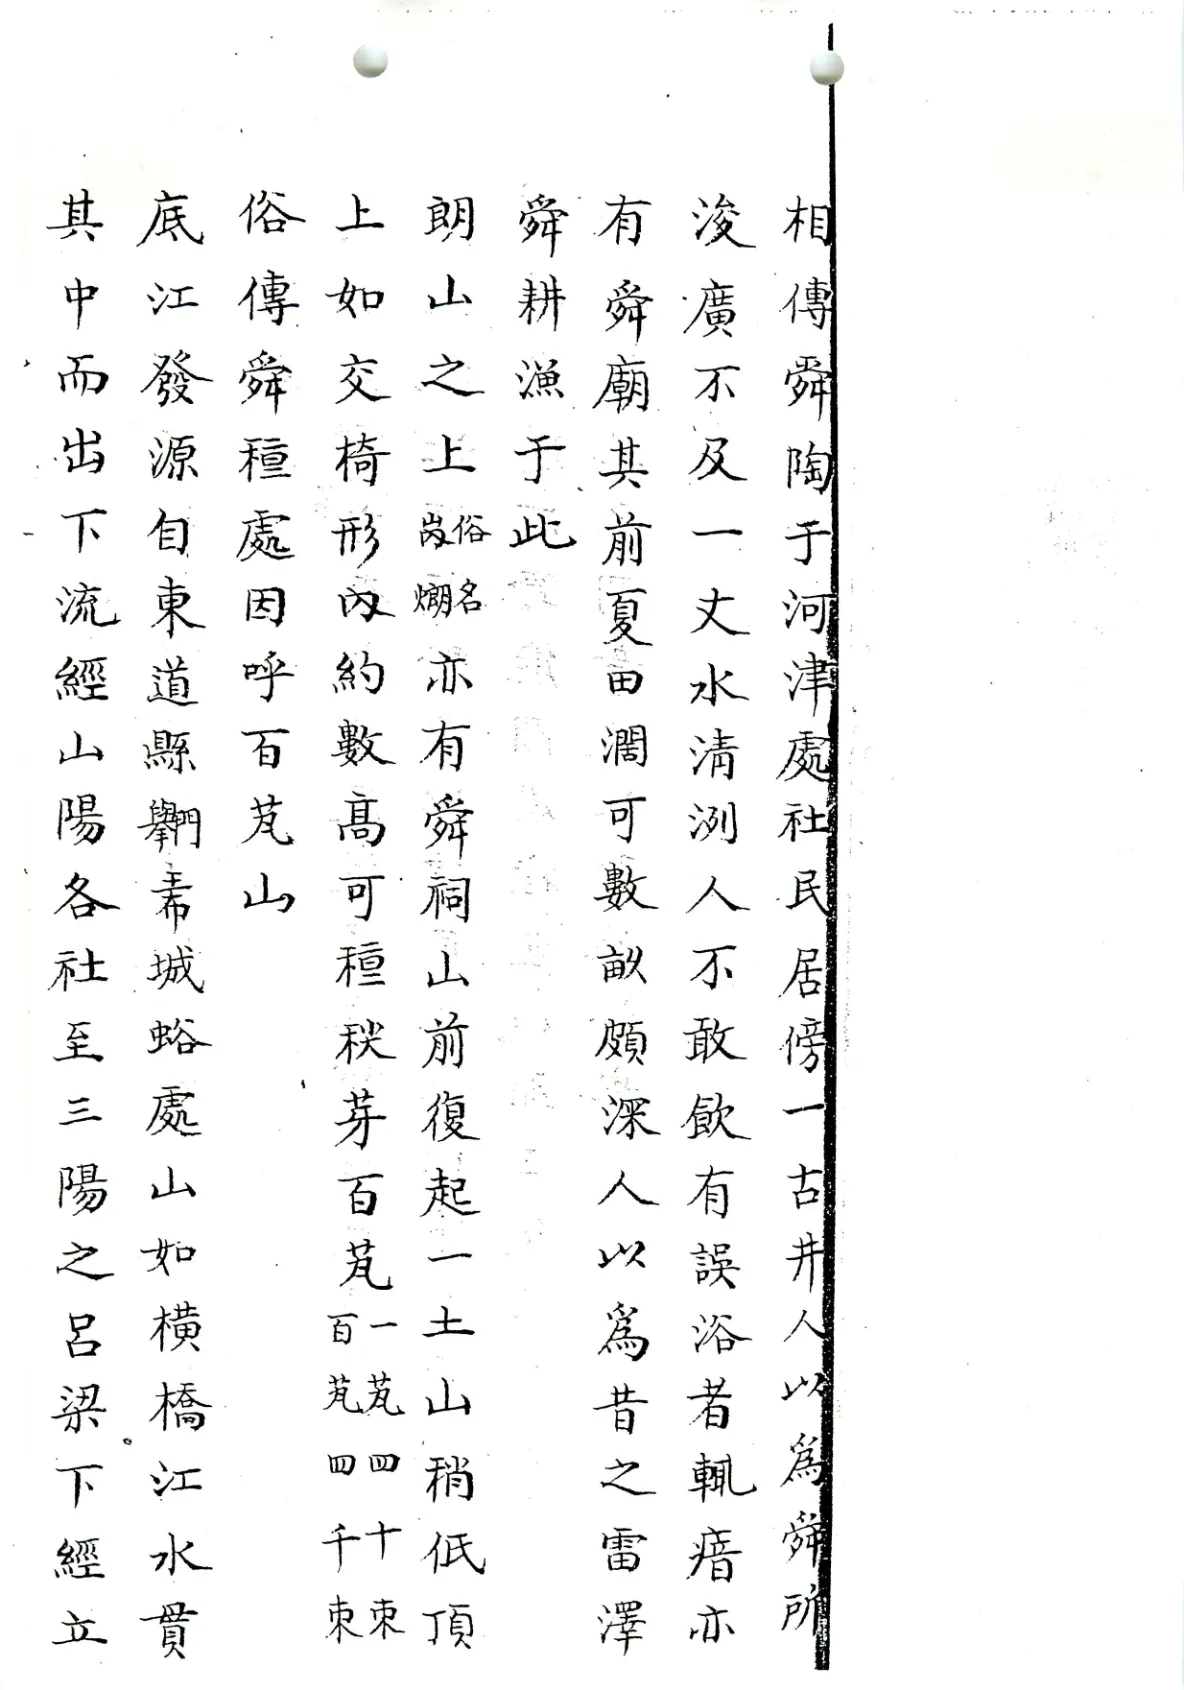 相傳舜陶于河津處社民居傍一古井人以為舜所
浚廣不及一丈水清洌人不敢飲有誤浴者輒瘖亦
有舜廟其前夏田濶可數畝頗深人以為昔之雷澤
舜耕漁于此
朗山之上俗名㟁𤊥亦有舜祠山前復起一土山稍低頂
上如交椅形內約數高可種秧芽百芃一芃四十束百芃四千束
俗傳舜種處因呼百芃山
底江發源自東道縣𨷯𢂞城蛒處山如橫橋江水貫
其中而出下流經山陽各社至三陽之呂梁下經立